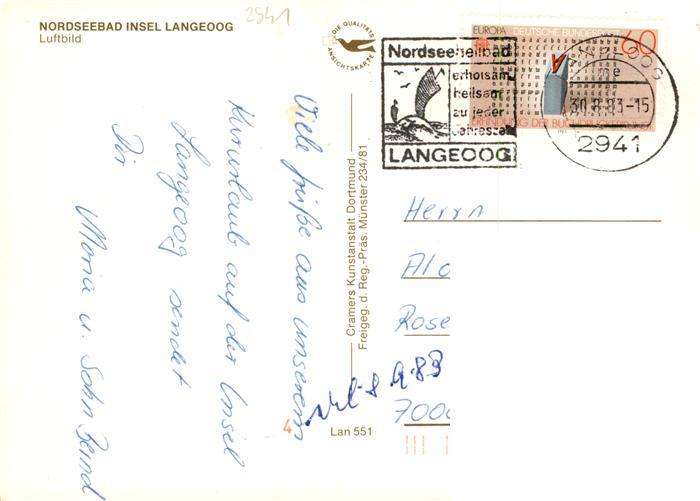 NORDSEEBAD INSEL LANGEOOG
Luftbild
2941
DIE QUALITÄTS
ANSICHTSKARTE
Viele Grüße aus unserem
Kururlaub auf der Insel
Langeoog sendet
Dir
Maria u. Sohn Bernd
Cramers Kunstanstalt Dortmund
Freigeg. d. Reg.-Präs. Münster 234/81
Lan 551
4
Nordseeheilbad
erholsam
heilsam
zu jeder
Jahreszeit
LANGEOOG
EUROPA DEUTSCHE BUNDESPOST
60
30.8.83-15
2941
Herrn
Alo
Rose
7000
8.9.83